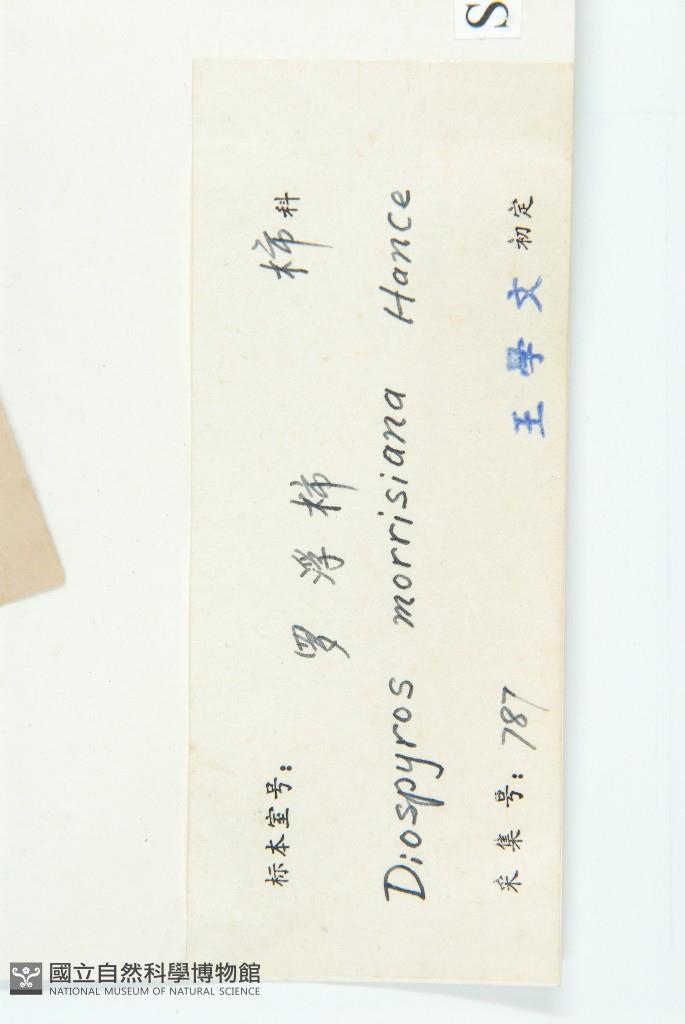 S
标本室号：
罗浮柿 柿科
Diospyros morrisiana Hance
采集号：787 王學文 初定
國立自然科學博物館
NATIONAL MUSEUM OF NATURAL SCIENCE